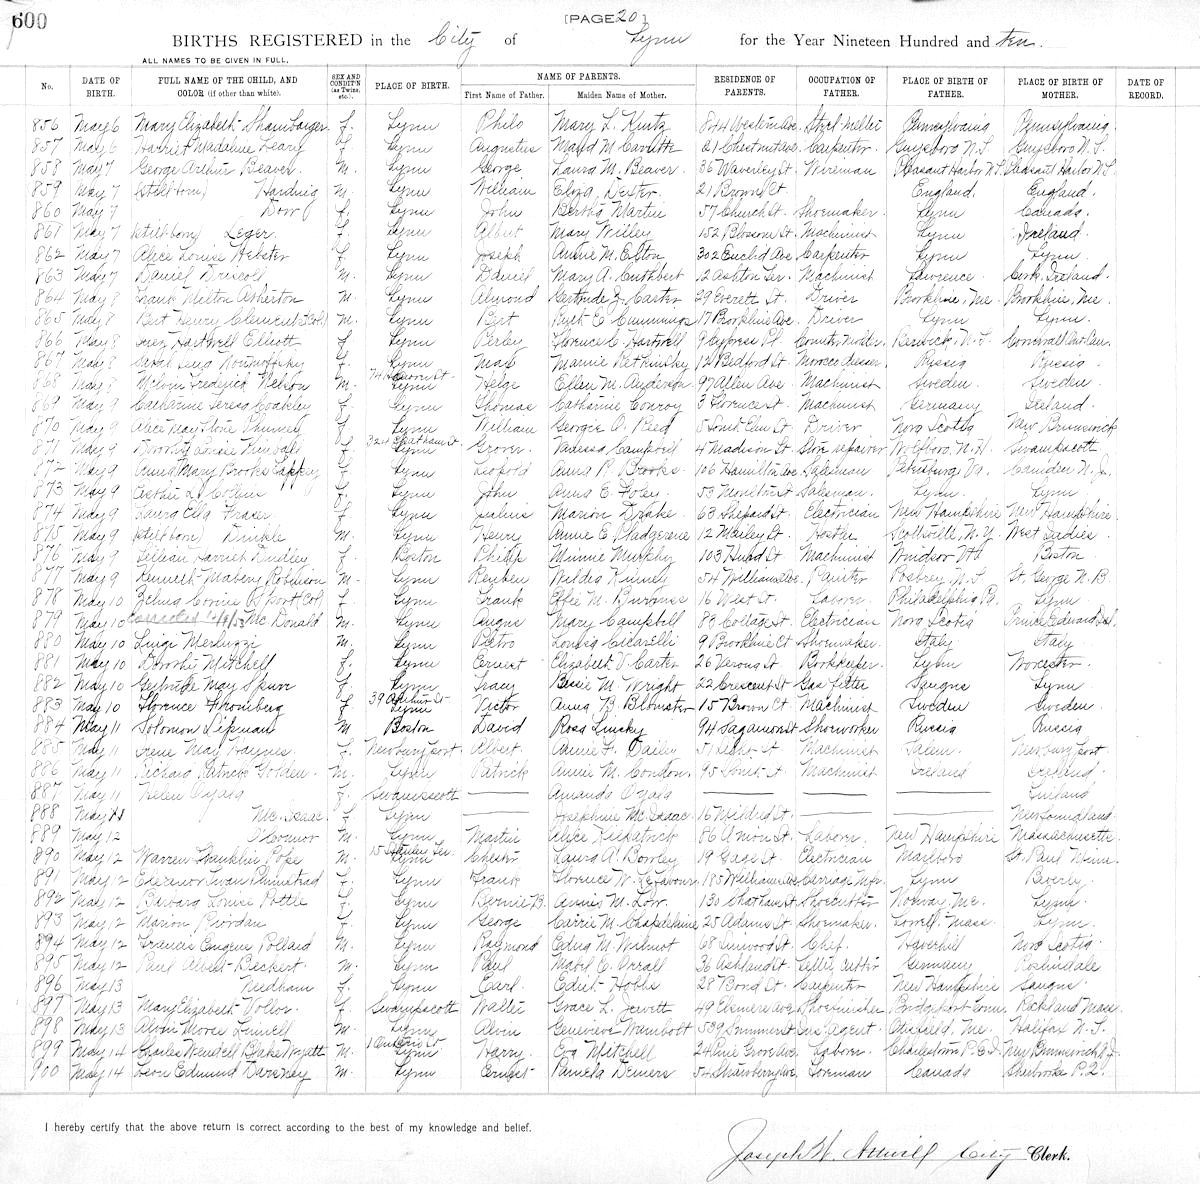 600
[PAGE 20]
BIRTHS REGISTERED in the City of Lynn for the Year Nineteen Hundred and ten.
ALL NAMES TO BE GIVEN IN FULL.
No. DATE OF BIRTH. FULL NAME OF THE CHILD, AND COLOR (if other than white). SEX AND CONDIT'N (as Twins, etc.). PLACE OF BIRTH. NAME OF PARENTS. First Name of Father. Maiden Name of Mother. RESIDENCE OF PARENTS. OCCUPATION OF FATHER. PLACE OF BIRTH OF FATHER. PLACE OF BIRTH OF MOTHER. DATE OF RECORD.
856 May 6 Mary Elizabeth Shambarger f. Lynn Philo Mary L. Kuntz 844 Western Ave Pennsylvania Pennsylvania
857 May 6 Harriet Madeline Leary f. Lynn Augustus Maud M. 21 Chestnut Ave Carpenter Guysboro N.S. Guysboro N.S.
858 May 7 George Arthur Beaver m. Lynn George Laura M. Beaver 36 Waverley St. Wireman Pleasant Harbor N.S. Pleasant Harbor N.S.
859 May 7 (stillborn) Harding m. Lynn William Eliza Dexter 21 Brown Ct. England. England.
860 May 7 Dow f. Lynn John Bertha Martin 57 Church St. Shoemaker. Lynn Canada.
861 May 7 (stillborn) Leger f. Lynn Albert Mary Willey 152 Blossom St. Machinist Lynn Ireland
862 May 7 Alice Louise Webster f. Lynn Joseph Annie M. Elston 302 Euclid Ave Carpenter Lynn Lynn
863 May 7 Daniel Driscoll m. Lynn Daniel Mary A. Cuthbert 12 Ashton Ter. Machinist Lawrence Cork, Ireland.
864 May 8 Frank Milton Asherton m. Lynn Almond Gertrude J. Carter 29 Everett St. Driver Brookline, Me Brookline, Me
865 May 8 Bert Henry Clement (Col) m. Lynn Bert Ruth E. Cummings 17 Brookline Ave Driver Lynn Lynn.
866 May 8 Inez Hartwell Elliott f. Lynn Perley Florence C. Hartwell 9 Cypress Pl. Berwick, N.S.
867 May 8 Sarah f. Lynn Max Mamie 12 Bedford St. Morocco dresser Russia Russia
868 May 8 Milton Frederick Nelson m. Lynn Helge Ellen M. Anderson 97 Allen Ave Machinist Sweden Sweden
869 May 9 Catharine Teresa Coakley f. Lynn Thomas Catharine Conroy 3 Florence St. Machinist Germany Ireland
870 May 9 Alice May Phinney f. Lynn William Georgie A. Reed 5 South Elm St Driver Nova Scotia New Brunswick
871 May 9 Dorothy Kimball f. 324 Chatham St. Lynn Grover Vanessa Campbell 4 Madison St. Wolfboro, N.H. Swampscott
872 May 9 Anna Mary Brooks Lappey f. Lynn Leopold Anna P. Brooks 106 Hamilton Ave Salesman Petersburg Va. Camden N.J.
873 May 9 Esther L. Collins f. Lynn John Anna E. Foley 53 Moulton St Salesman. Lynn Lynn
874 May 9 Laura Ella Fraser f. Lynn Marion Drake 63 Shepard St. Electrician New Hampshire New Hampshire.
875 May 9 (stillborn) Dunkle m. Lynn Henry Annie E. 12 Mailey St. Hostler Scottsville, N.Y. West Indies
876 May 9 Lillian Harriet Dudley f. Boston Philip Minnie Murphy 103 Hund St Machinist Windsor Boston
877 May 9 Kenneth Robinson m. Lynn Reuben Wilda Kinney 54 Williams Ave Painter N.S. St. George N.B.
878 May 10 Zelma Corine (Col) f. Lynn Frank Effie M. 16 West St. Laborer Philadelphia Pa. Lynn
879 May 10 Corrected Mc Donald m. Lynn Angus Mary Campbell 83 College St. Electrician Nova Scotia Prince Edward Isl.
880 May 10 Luigi Merluzzi m. Lynn Pietro Louisa Cicarelli 9 Brookline Ct Shoemaker. Italy Italy
881 May 10 Dorothy Mitchell f. Lynn Ernest Elizabeth V. Carter 26 Verona St Bookkeeper. Lynn Worcester.
882 May 10 Gertrude May Spurr f. Lynn Tracy Bessie M. Wright 22 Crescent St Gas fitter Saugus Lynn
883 May 10 Florence Froneberg f. 39 Arthur St Lynn Victor Anna B. Blomster 15 Brown Ct. Machinist Sweden Sweden.
884 May 11 Solomon Lipsman m Boston David Rosa Linsky 94 Sagamore St Shoeworker Russia Russia
885 May 11 Irene May Haynes. f. Newburyport Albert Annie F. Dailey 51 Light St Machinist Salem. Newburyport
886 May 11 Richard Patrick Golden. m. Lynn Patrick Annie M. Condon. 95 South St. Machinist Ireland Ireland
887 May 11 Helen f. Swampscott Amanda Finland
888 May 11 Mc. Isaac. f. Lynn Josephine McIsaac. 16 Mildred St. Newfoundland
889 May 12 O'Connor m. Lynn Martin Alice Kilpatrick 86 Union St. Laborer. New Hampshire Massachusetts
890 May 12 Warren Franklin Pope m. 15 Stanley Ter. Lynn Chester Laura A. Bowley 19 Gage St. Electrician Marlboro St. Paul Minn.
891 May 12 Eleanor f. Lynn Frank Florence W. 185 Williams Ave Carriage Mfr. Lynn Beverly
892 May 12 Barbara Louise Pottle f. Lynn Bernie B. Annie M. Low. 130 Chatham St Shoecutter Norway, Me. Lynn.
893 May 12 Marion Riordan f. Lynn George Carrie M. Chapdelaine 25 Adams St. Shoemaker. Lowell Mass. Lynn.
894 May 12 Francis Eugene Pollard m. Lynn Raymond Edna M. Wilmot 68 Linwood St. Chef. Haverhill Nova Scotia.
895 May 12 Paul Albert Beckert. m. Lynn Paul Mabel E. Orrall 36 Ashland St. cutter Germany Roslindale
896 May 13 Needham f. Lynn Earl. Edith Hobbs 28 Bond St. Carpenter New Hampshire Saugus.
897 May 13 Mary Elizabeth Voller. f. Swampscott Walter Grace L. Jewett 49 Elsmere Ave Bridgeport Conn. Rockland Mass.
898 May 13 Alvin Moore Linnell m. Lynn Alvin Genevieve Wambolt 589 Summer St. Ins. Agent. Otisfield, Me. Halifax N.S.
899 May 14 Charles Wendell Blake Wyatt m. Lynn Harry. Eva Mitchell 24 Pine Grove Ave. Laborer. Charlestown P.E.I. New Brunswick
900 May 14 Leon Edmund m. Lynn Ernest Pamela Demers 54 Strawberry Ave. Foreman Canada Sherbrooke P.Q.
I hereby certify that the above return is correct according to the best of my knowledge and belief.
Joseph W. Attwill City Clerk.